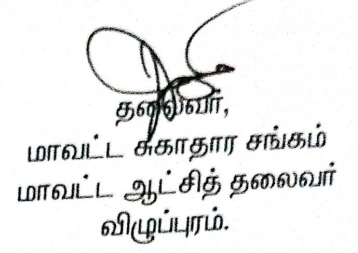 தலைவர்,
மாவட்ட சுகாதார சங்கம்
மாவட்ட ஆட்சித் தலைவர்
விழுப்புரம்.